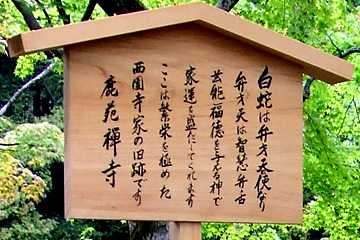 白蛇は弁才天の使なり
弁才天は智慧弁舌
芸能福徳を与える神で
家運を盛たしてくれます
ここは繁栄を極めた
西園寺家の旧跡です
鹿苑禅寺